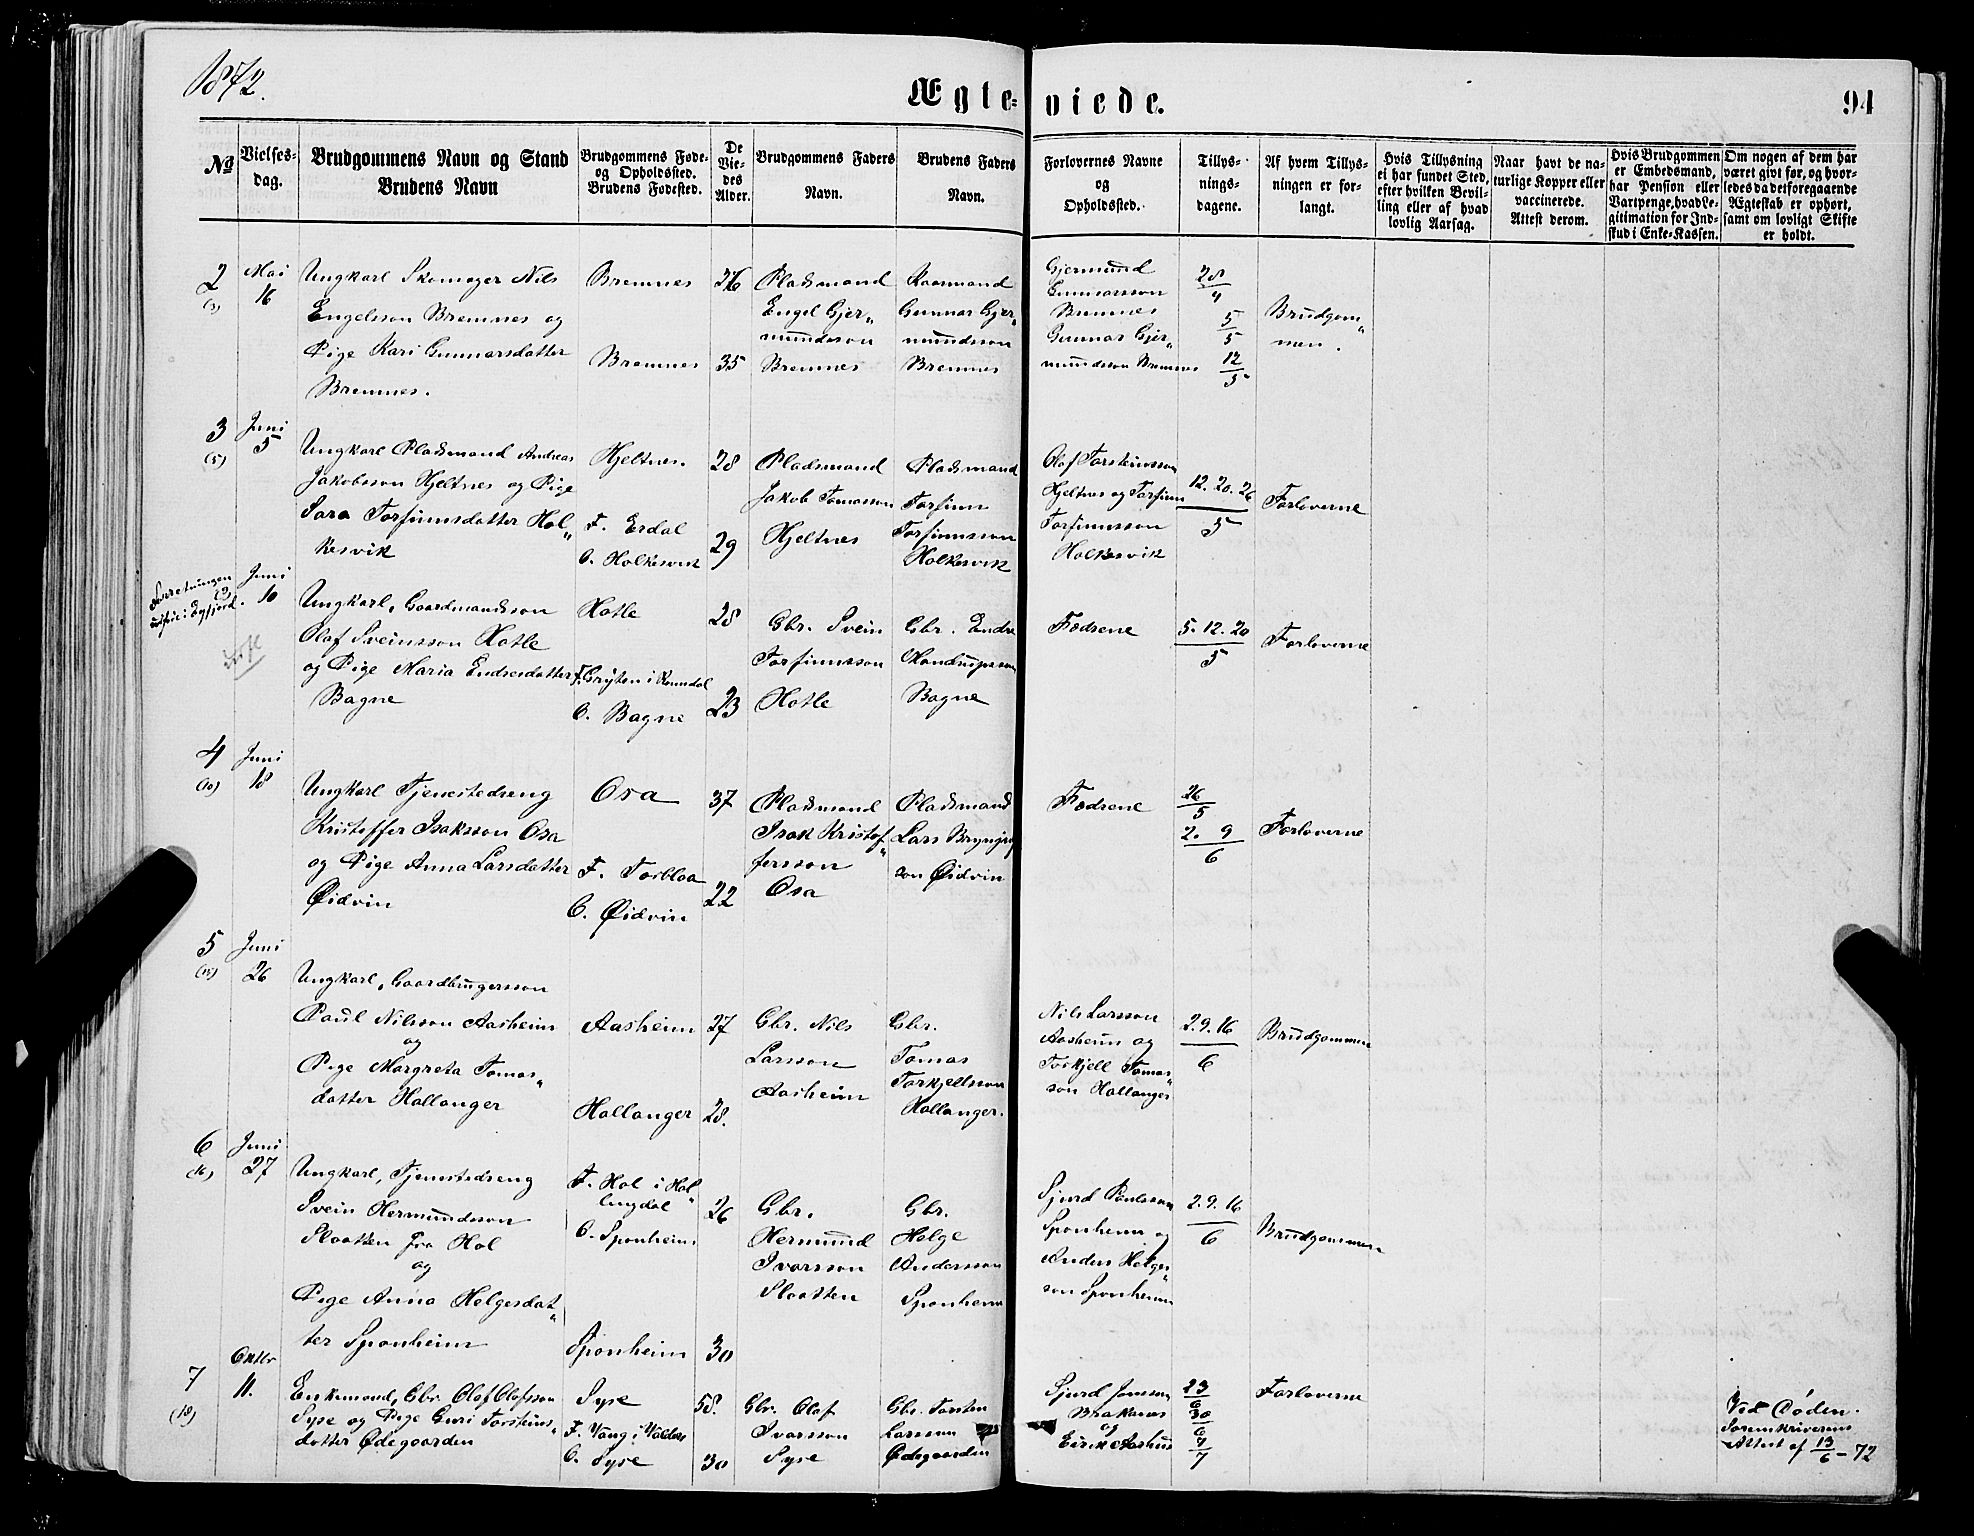 1872.
Ægte- viede.
94
No
Vielses-
dag.
Brudgommens Navn og Stand
Brudens Navn
Brudgommens Føde-
og Opholdssted.
Brudens Fødested.
De
Vie-
des
Alder.
Brudgommens Faders
Navn.
Brudens Faders
Navn.
Forlovernes Navne
og
Opholdssted.
Tillys-
nings-
dagene.
Af hvem Tillys-
ningen er for-
langt.
Hvis Tillysning
ei har fundet Sted,
efter hvilken Bevil-
ling eller af hvad
lovlig Aarsag.
Naar havt de na-
turlige Kopper eller
vaccinerede.
Attest derom.
Hvis Brudgommen
er Embedsmand,
har Pension eller
Vartpenge, hvad Le-
gitimation for Ind-
skud i Enke-Kassen.
Om nogen af dem har
været givt før, og hvor-
ledes da det foregaaende
Ægteskab er ophørt,
samt om lovligt Skifte
er holdt.
2
(3)
Mai
16
Ungkarl Skomager Nils
Engelsson Bremnes og
Pige Kari Gunnarsdatter
Bremnes.
Bremnes
Bremnes
36
35
Pladsmand
Engel Gjer„
mundsson
Bremnes
Kaarmand
Gunnar Gjer„
mundsson
Bremnes
Gjermund
Gunnarsson
Bremnes
Gunnar Gjer„
mundsson Bremnes
28/4
5/5
12/5
Brudgom„
men.
3
(5)
Juni
5
Ungkarl Pladsmand Andreas
Jakobsson Hjeltnes og Pige
Sara Torfinnsdatter Hol„
kesvik
Hjeltnes.
F. Erdal
O. Holkesvik
28
29
Pladsmand
Jakob Tomasson
Hjeltnes
Pladsmand
Torfinn
Torfinnsson
Holkesvik
Olaf Torsteinsson
Hjeltnes og Torfinn
Torfinnsson
Holkesvik
12. 20. 26
5
Forloverne
Forretningen
udført i Eyfjord.
(9)
Juni
10
Ungkarl, Gaardmandsson
Olaf Sveinsson Hotle
og Pige Maria Endresdatter
Bagne
Hotle
F. Gryten i Romsdal
O. Bagne
28
23
Gbr. Svein
Torfinnsson
Hotle
Gbr. Endre
Bagne
Fædrene
5. 12. 20
5
Forloverne
4
(10)
Juni
18
Ungkarl Tjenestedreng
Kristoffer Isaksson Osa
og Pige Anna Larsdatter
Øidvin
Osa
F. Torblaa
O. Øidvin
37
22
Pladsmand
Isak Kristof„
fersson
Osa
Pladsmand
Lars Brynjulf
son Øidvin
Fædrene
26
5
2. 9
6
Forloverne
5
(15)
Juni
26
Ungkarl, Gaardbrugersson
Paul Nilsson Aasheim
og
Pige Margreta Tomas„
datter Hallanger
Aasheim
Hallanger
27
28.
Gbr. Nils
Larsson
Aasheim
Gbr.
Tomas
Torkjellsson
Hallanger.
Nils Larsson
Aasheim og
Torkjell Tomas„
son Hallanger
2. 9. 16
6
Brudgommen
6
(16)
Juni
27
Ungkarl, Tjenestedreng
Svein Hermundsson
Slaatten fra Hol
og
Pige Anna Helgesdat„
ter Sponheim
F. Hol i Hal„
lingdal
O. Sponheim
Sponheim
26
30
Gbr.
Hermund
Ivarsson
Slaatten
Gbr.
Helge
Andersson
Sponheim
Sjurd Paulsson
Sponheim og
Anders Helges„
son Sponheim
2. 9. 16
6
Brudgommen
7
(18)
Oktbr
11.
Enkemand, Gbr. Olaf Olafsson
Syse og Pige Guri Torsteins„
datter Ødegaarden
Syse
F. Vang i Valders
O. Syse
58.
30
Gbr. Olaf
Ivarsson
Syse
Gbr. Torsten
Larsson
Ødegaarden
Sjurd Jonsson
Brakenes
og
Eirik Aashus
23/6
30/6
7/7
Forloverne
Ved Døden.
Sorenskriverens
Attest af 13/6 - 72